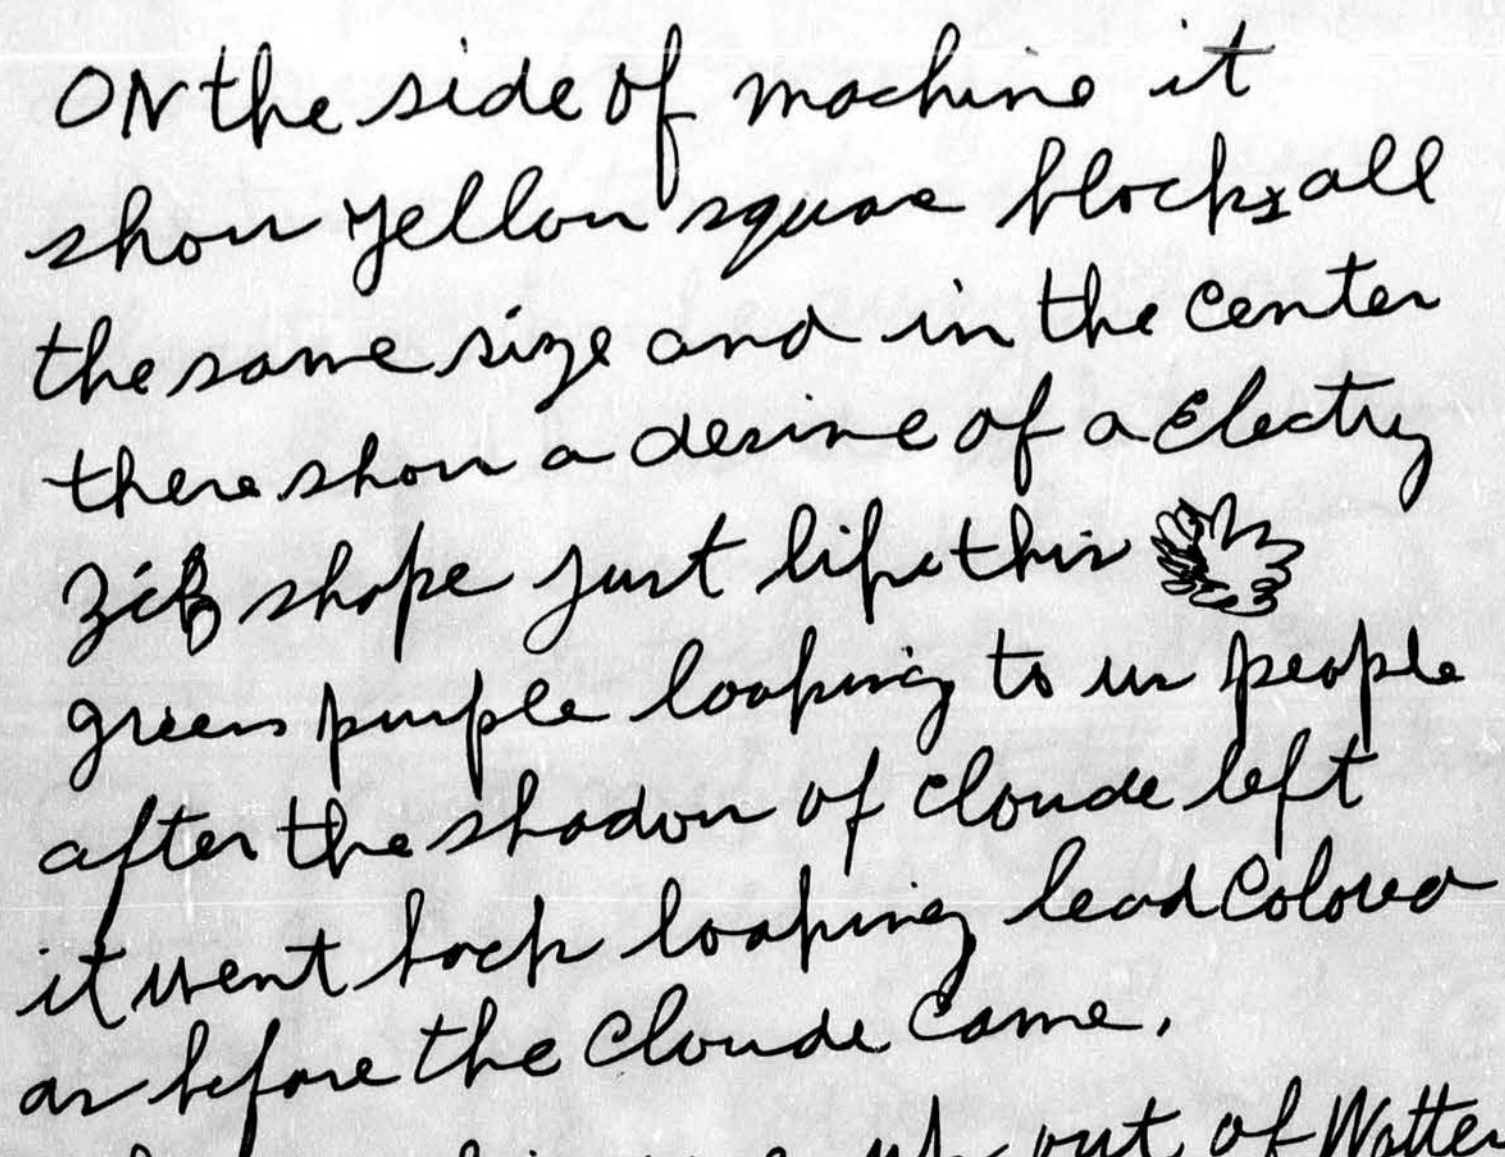 ON the side of machine it
show yellow squae blocks all
the same size and in the center
there show a desine of a Electry
shape just like this
green purple looking to us people
after the shadow of cloude left
it went back looking lead Colored
as before the Cloude Came.
up out of Watter